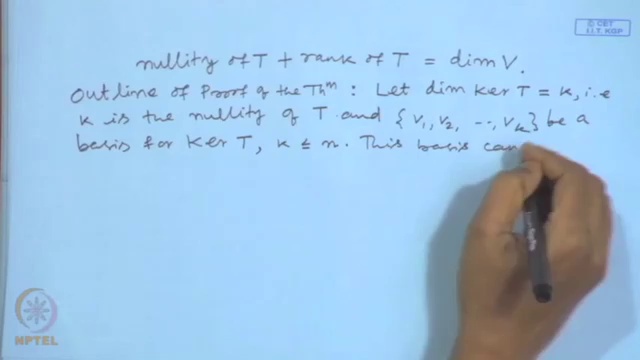 © CET
I.I.T. KGP
nullity of T + rank of T = dim V.
Outline of Proof of the Thm : Let dim Ker T = k, i.e
k is the nullity of T and {v1, v2, ..., vk} be a
basis for Ker T, k ≤ n. This basis can
NPTEL